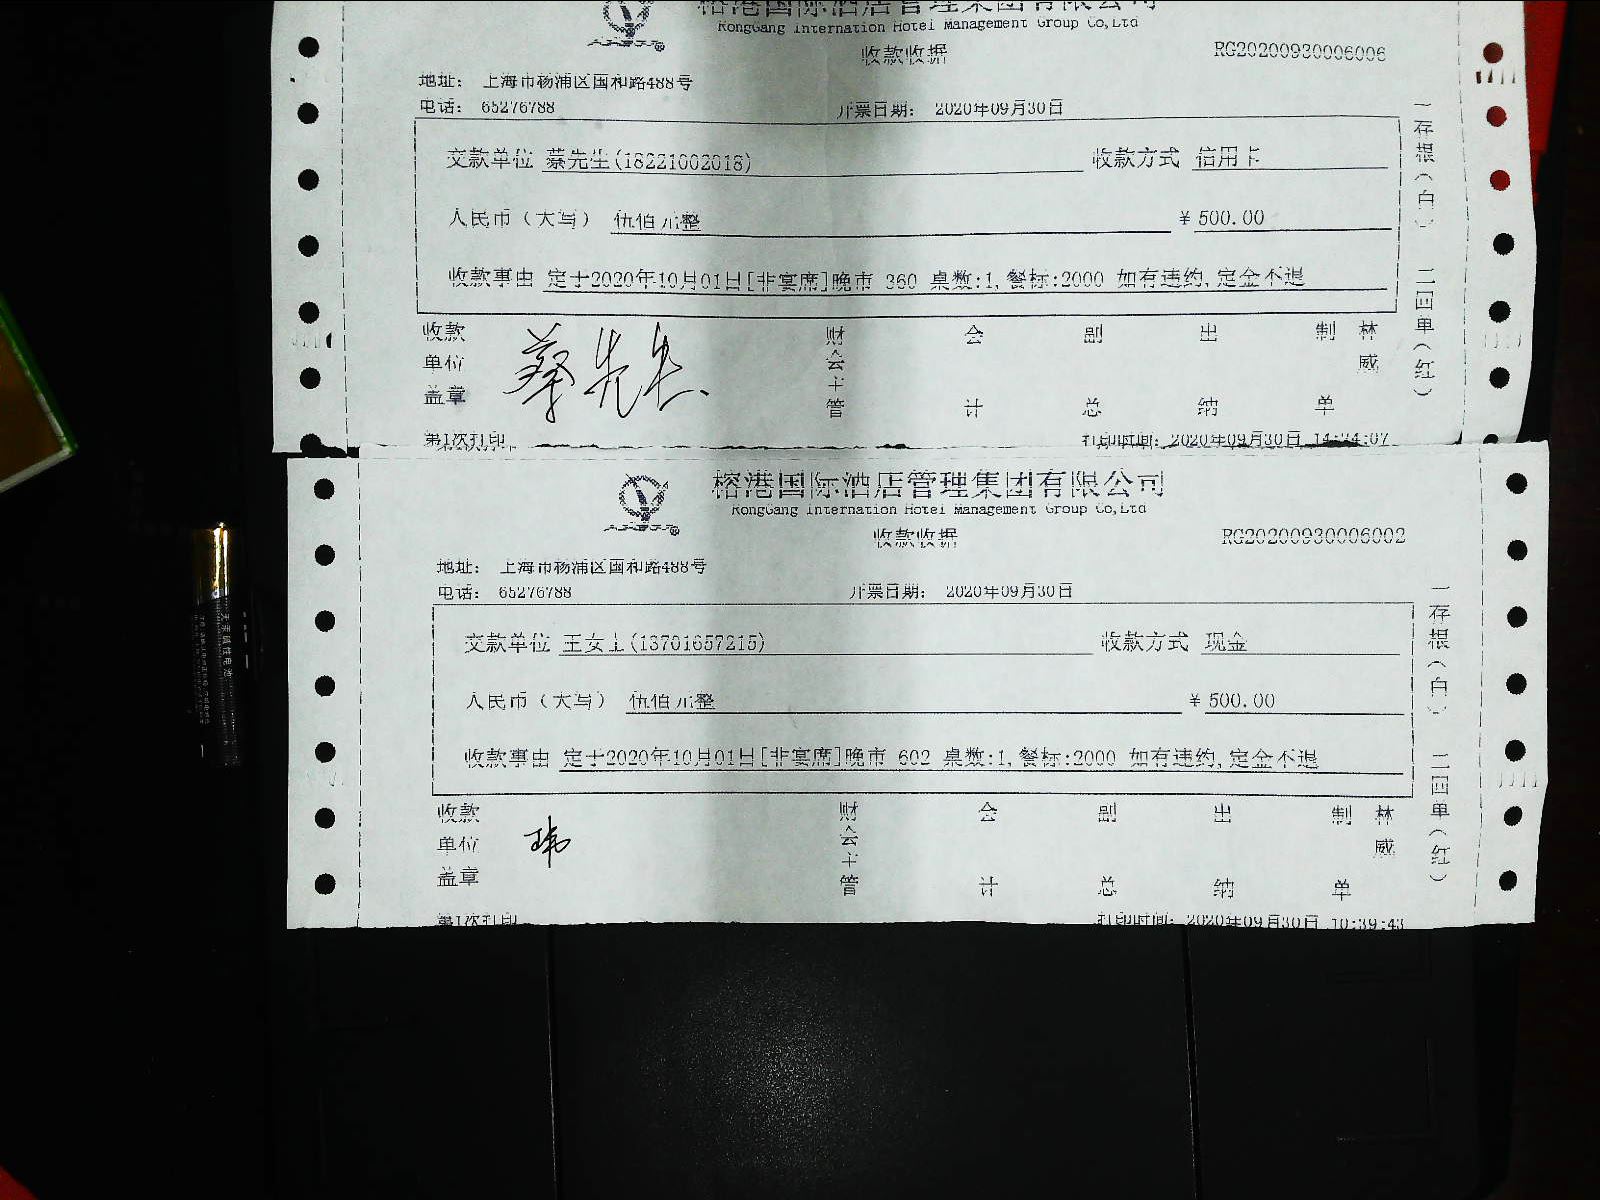 榕港国际酒店管理集团有限公司
RongGang Internation Hotel Management Group Co,Ltd
收款收据 RG20200930006006
地址： 上海市杨浦区国和路488号
电话： 65276788 开票日期： 2020年09月30日
交款单位 蔡先生(18221002018) 收款方式 信用卡
人民币（大写） 伍佰元整 ¥ 500.00
收款事由 定于2020年10月01日[非宴席]晚市 360 桌数:1,餐标:2000 如有违约,定金不退
收款单位盖章 蔡先生 财会主管 会计 副总 出纳 制单 林威
一存根（白） 二四单（红）
第1次打印 打印时间: 2020年09月30日 14:24:07
榕港国际酒店管理集团有限公司
RongGang Internation Hotel Management Group Co,Ltd
收款收据 RG20200930006002
地址： 上海市杨浦区国和路488号
电话： 65276788 开票日期： 2020年09月30日
交款单位 王女士(13701657215) 收款方式 现金
人民币（大写） 伍佰元整 ¥ 500.00
收款事由 定于2020年10月01日[非宴席]晚市 602 桌数:1,餐标:2000 如有违约,定金不退
收款单位盖章 财会主管 会计 副总 出纳 制单 林威
一存根（白） 二四单（红）
第1次打印 打印时间: 2020年09月30日 10:39:43